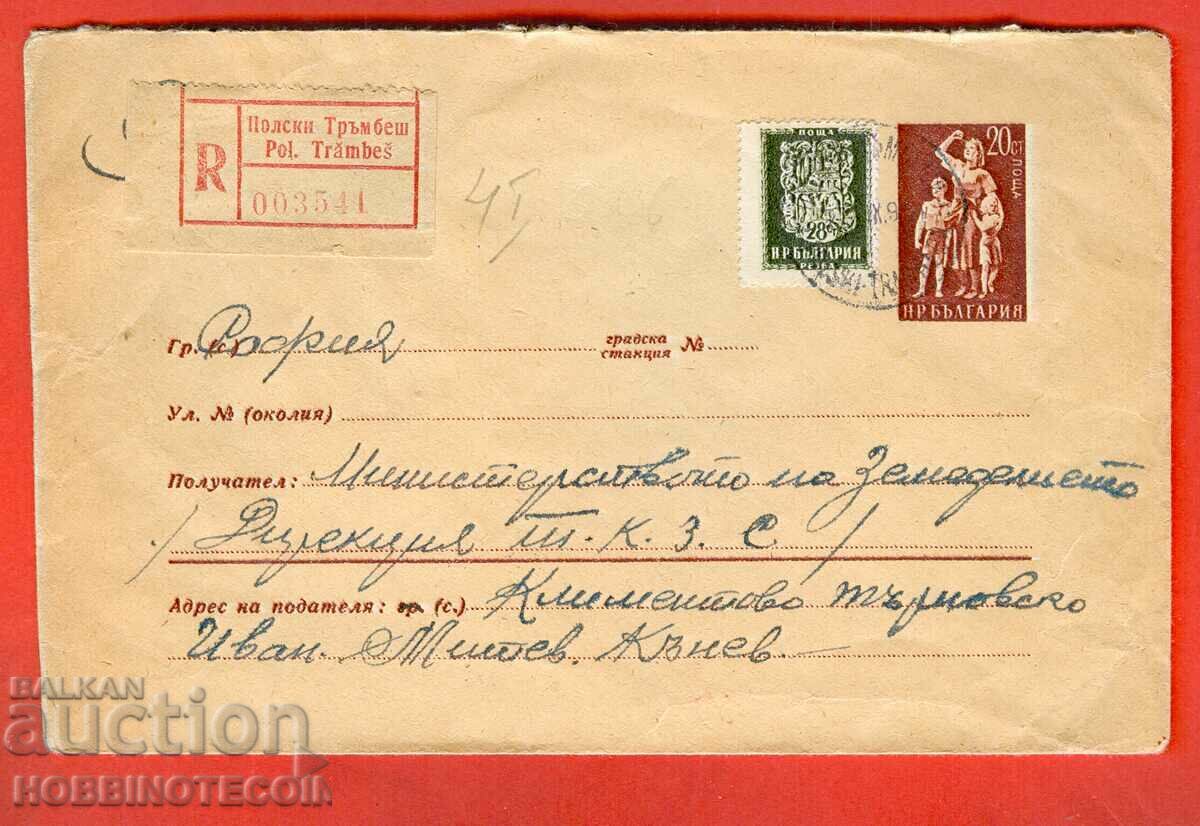 Полски Тръмбеш
Pol. Trămbeš
R
003541
ПОЩА
28 ст
НР БЪЛГАРИЯ
РЕЗБА
20 СТ
ПОЩА
НР БЪЛГАРИЯ
Гр. (с.) София градска станция №
Ул. № (околия)
Получател: Министерството на Земеделието
/ Дирекция Т. К. З. С. /
Адрес на подателя: гр. (с.) Климентово търновско
Иван Митев Кънев.
BALKAN
auction
HOBBINOTECOIN